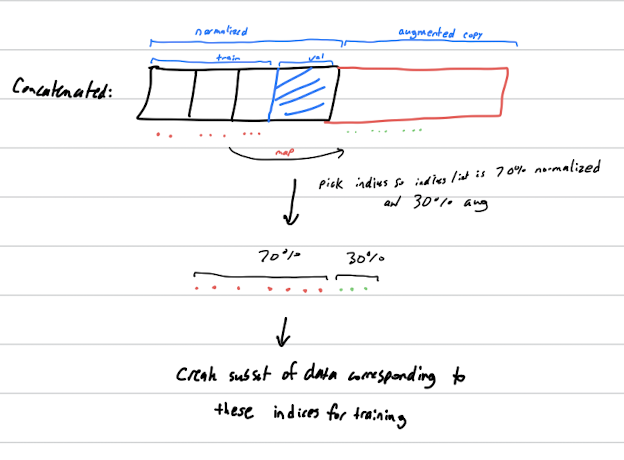 normalized
augmented copy
train
val
Concatenated:
map
pick indices so indices list is 70% normalized
and 30% aug
70%
30%
Create subset of data corresponding to
these indices for training